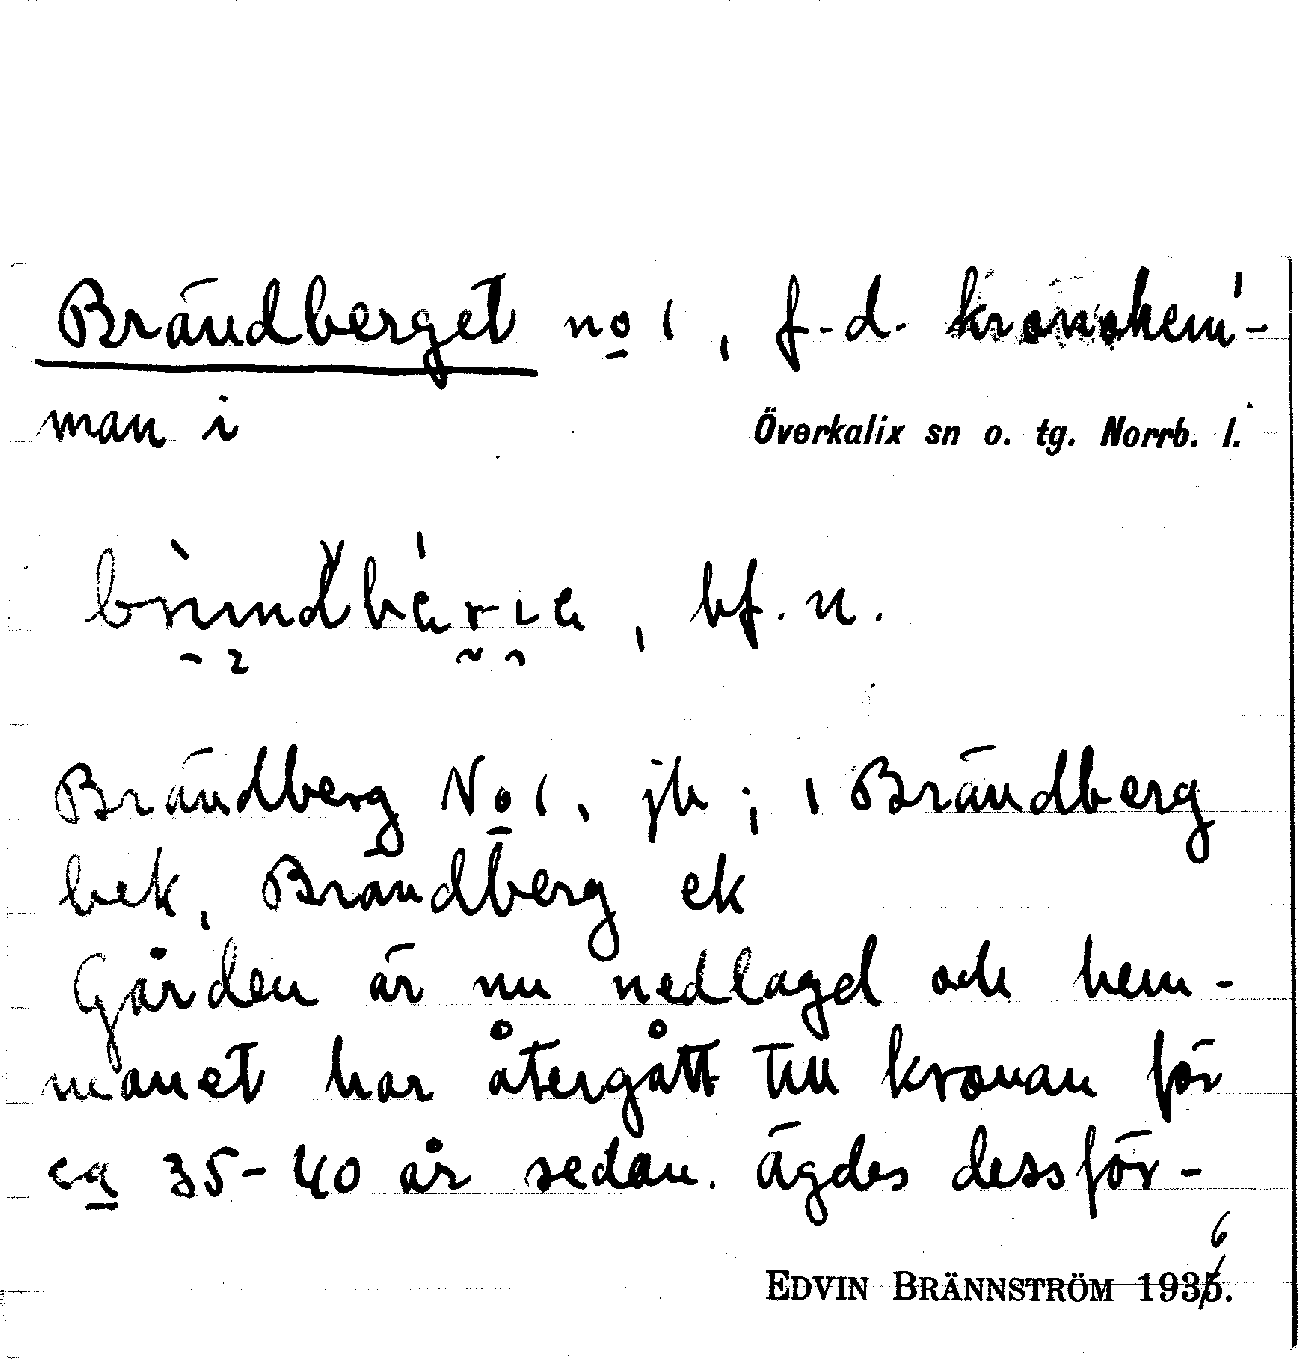 Brändberget no 1, f.d. kronohem-
man i Överkalix sn o. tg. Norrb. l.
bf. n.
Brändberg No 1, jb; 1 Brändberg
bek, Brändberg ek
Gården är nu nedlagd och hem-
manet har återgått till kronan för
ca 35-40 år sedan. Ägdes dessför-
6
EDVIN BRÄNNSTRÖM 1935.